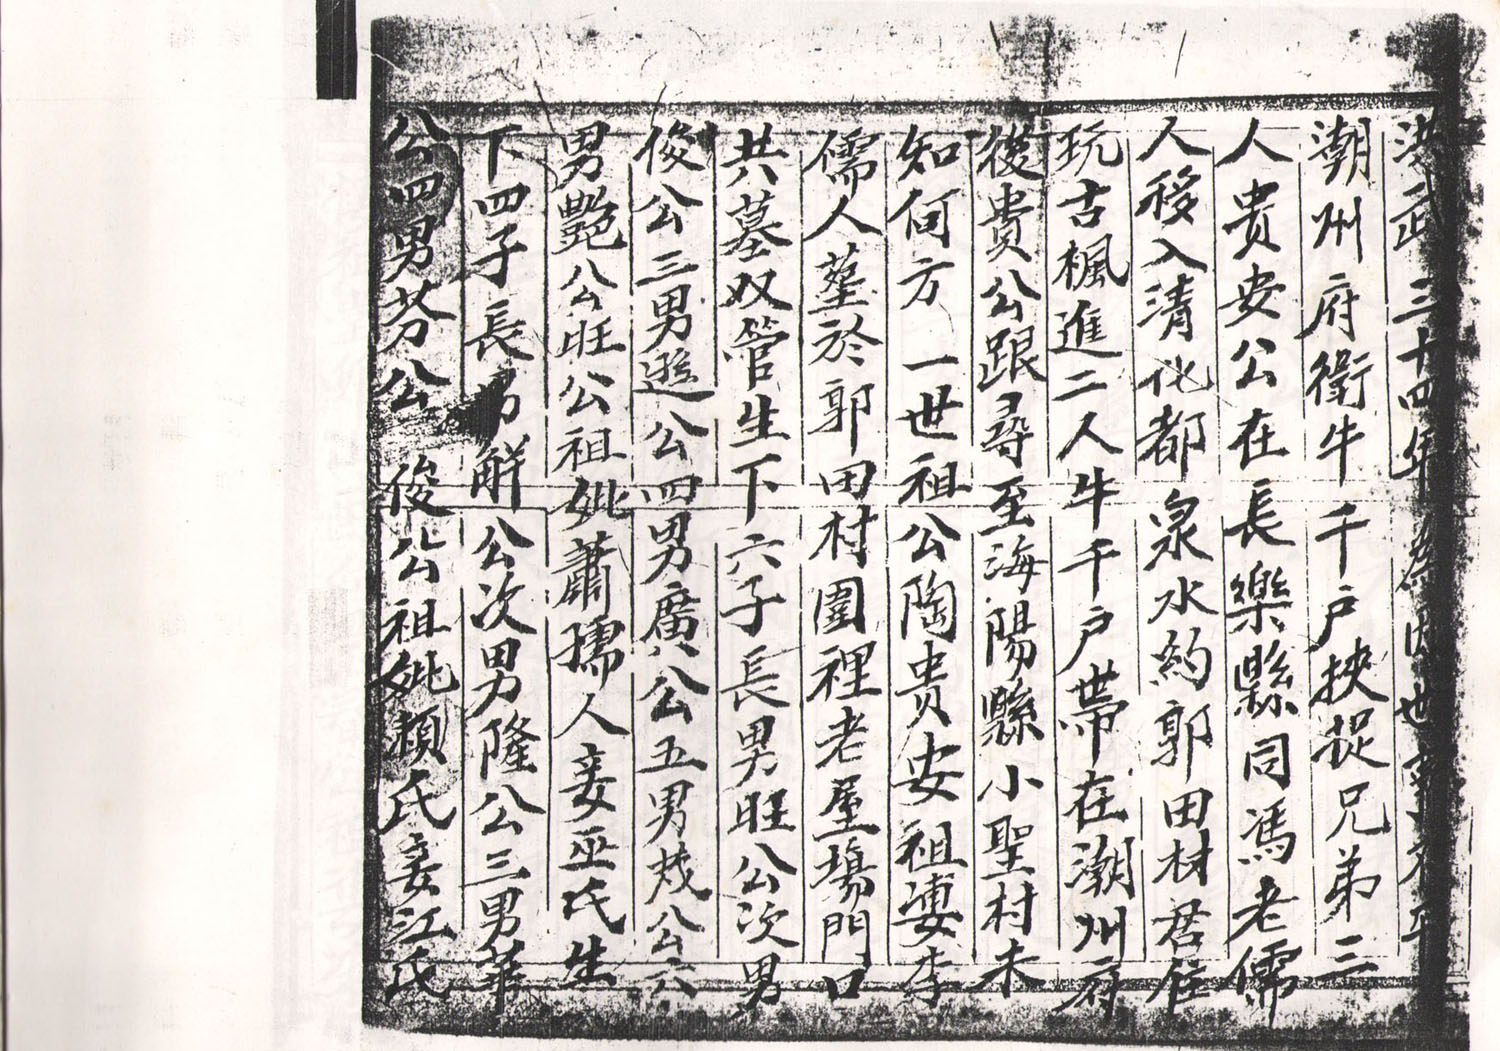 洪武三十四年為因世
潮州府衛牛千戶挾捉兄弟三
人貴安公在長樂縣同馮老儒
人移入清化都泉水約郭田材君住
玩古楓進二人牛千戶帶在潮州府
後貴公跟尋至海陽縣小聖村未
知何方一世祖公陶貴安祖婆李
儒人墓於郭田村圍裡老屋場門口
共墓奴管生下六子長男旺公次男
俊公三男遜公四男廣公五男茂公六
男艷公旺公祖妣蕭孺人妾巫氏生
下四子長男觧公次男隆公三男華
公四男芬公俊公祖妣賴氏妾江氏